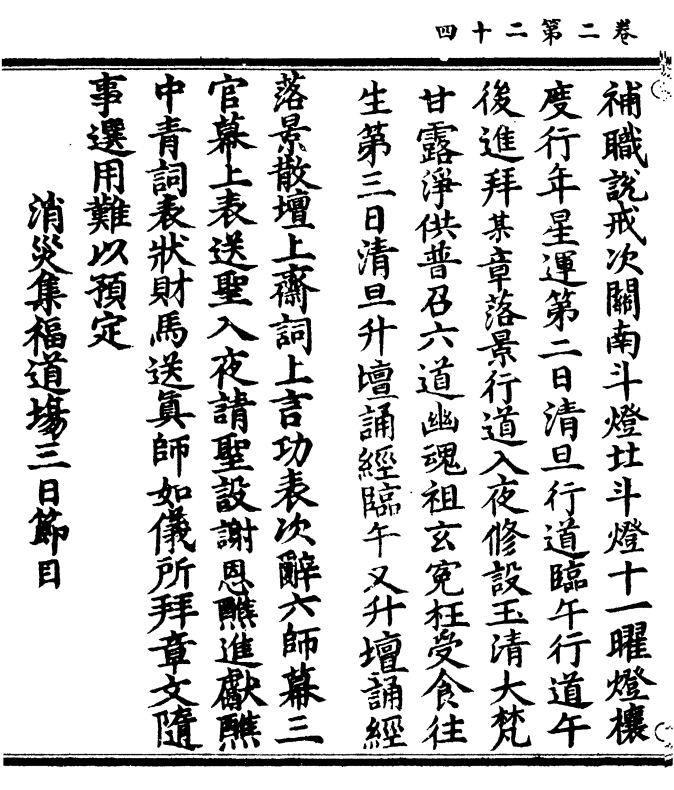 卷二第二十四
補職說戒次關南斗燈北斗燈十一曜燈禳
度行年星運第二日清旦行道臨午行道午
後進拜某章落景行道入夜修設玉清大梵
甘露淨供普召六道幽魂祖玄寃枉受食往
生第三日清旦升壇誦經臨午又升壇誦經
落景散壇上齋詞上言功表次辭六師幕三
官幕上表送聖入夜請聖設謝恩醮進獻醮
中青詞表狀財馬送眞師如儀所拜章文隨
事選用難以預定
消災集福道場三日節目